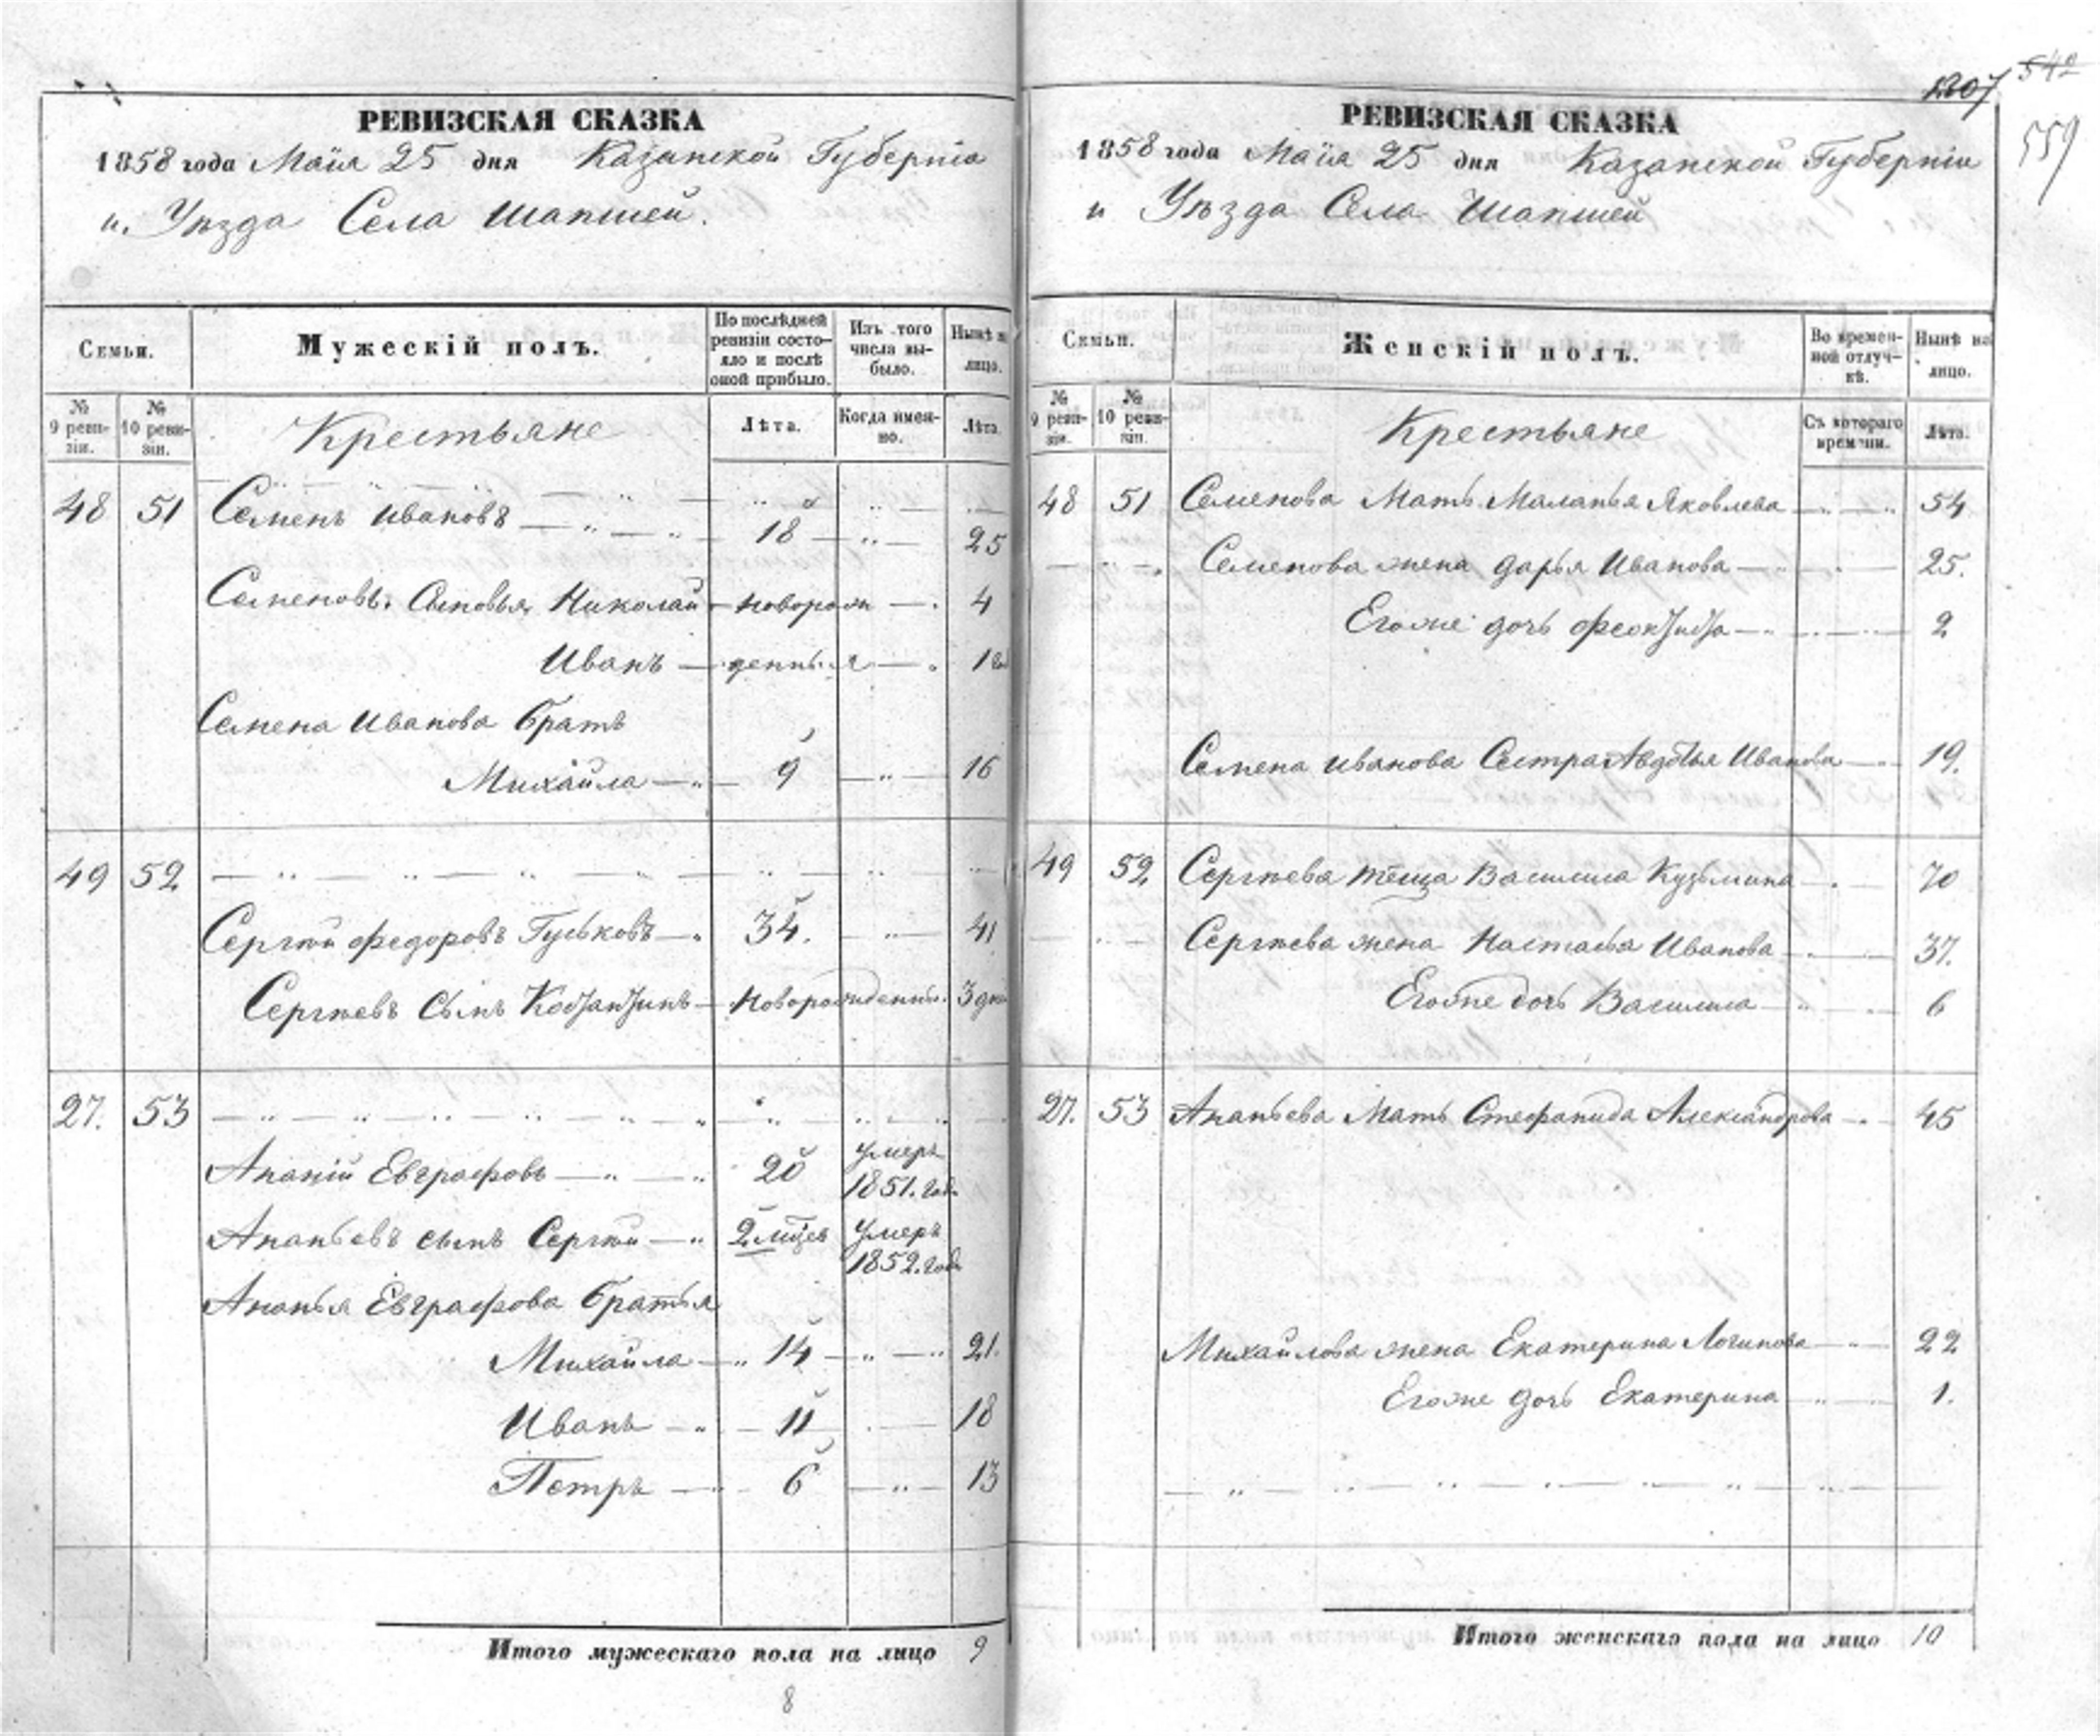 РЕВИЗСКАЯ СКАЗКА
1858 года Маія 25 дня Казанской Губерніи
и Уѣзда Села Шапшей.
Семьи.
Мужескій полъ.
По послѣдней ревизіи состояло и послѣ оной прибыло.
Изъ того числа выбыло.
Нынѣ на лицо.
№ 9 ревизіи.
№ 10 ревизіи.
Крестьяне
Лѣта.
Когда именно.
Лѣта
48 51 Семенъ Ивановъ 18 25
Семеновы Сыновья Николай новорож 4
Иванъ денныя 1
Семена Иванова братъ
Михайла 9 16
49 52
Сергѣй Федоровъ Гуськовъ 34. 41
Сергѣевъ Сынъ Костантинъ Новорожденный 3 дня
27. 53
Ананій Евграфовъ 20 умеръ 1851. года
Ананьевъ сынъ Сергѣй 2 мѣсяц умеръ 1852. года
Ананья Евграфова братья
Михайла 14 21.
Иванъ 11 18
Петръ 6 13
Итого мужескаго пола на лицо 9
8
1207 542
559
РЕВИЗСКАЯ СКАЗКА
1858 года Маія 25 дня Казанской Губерніи
и Уѣзда Села Шапшей
Семьи.
Женскій полъ.
Во временной отлучкѣ.
Нынѣ на лицо.
№ 9 ревизіи.
№ 10 ревизіи.
Крестьяне
Съ котораго времени.
Лѣта.
48 51 Семенова Мать Маланья Яковлева 54
Семенова жена Дарья Иванова 25.
Егоже дочь Феоктиста 2
Семена Иванова Сестра Авдотья Иванова 19.
49 52 Сергѣева теща Василиса Кузьмина 70
Сергѣева жена Настасья Иванова 37.
Егоже дочь Василиса 6
27. 53 Ананьева Мать Стефанида Александрова 45
Михайлова жена Екатерина Логинова 22
Егоже дочь Екатерина 1.
Итого женскаго пола на лицо 10